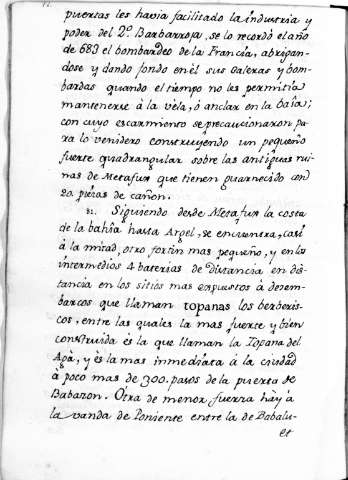 puertas les havia facilitado la industria y
poder del 2º Barbarroja, se lo recordó el año
de 683 el bombardeo de la Francia, abrigan-
dose y dando fondo en èl sus Galeras y bom-
bardas quando el tiempo no les permitia
mantenerse à la vela, ó anclar en la baîa;
con cuyo escarmiento se precaucionaron pa-
ra lo venidero construyendo un pequeño
fuerte quadrangular sobre las antiguas rui-
nas de Metafux que tienen guarnecido con
20. piezas de cañon.
31. Siguiendo desde Metafux la costa
de la bahia hasta Argel, se encuentra, casi
à la mitad, otro fortin mas pequeño, y en los
intermedios 4 baterias de distancia en dis-
tancia en los sitios mas expuestos à desem-
barcos que llaman topanas los berberis-
cos, entre las quales la mas fuerte y bien
construida ès la que llaman la Topana del
Agà, y ès la mas inmediata á la ciudad
à poco mas de 300. pasos de la puerta de
Babazon. Otra de menor fuerza hày à
la vanda de Poniente entre la de Babalu-
et